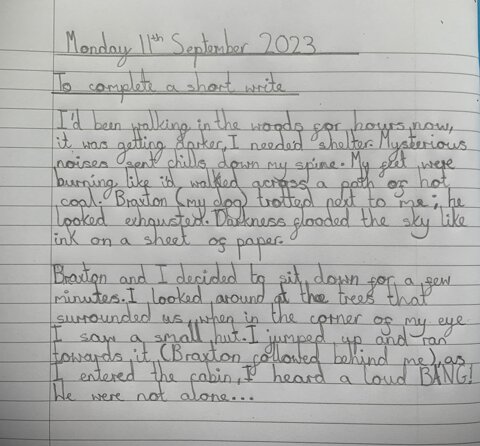 Monday 11th September 2023
To complete a short write
I'd been walking in the woods for hours now,
it was getting darker, I needed shelter. Mysterious
noises sent chills down my spine. My feet were
burning like i'd walked across a path of hot
coal. Braxton (my dog) trotted next to me; he
looked exhausted. Darkness flooded the sky like
ink on a sheet of paper.
Braxton and I decided to sit down for a few
minutes. I looked around at the trees that
surrounded us, when in the corner of my eye
I saw a small hut. I jumped up and ran
towards it (Braxton followed behind me), as
I entered the cabin, I heard a loud BANG!
We were not alone...